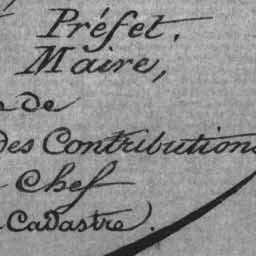 Préfet.
Maire,
de
des Contributions
Chef
Cadastre.